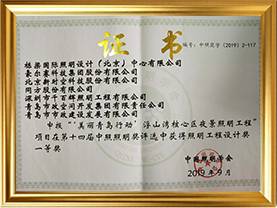 证书
编号：中照奖字（2019）2-117
栋梁国际照明设计（北京）中心有限公司
豪尔赛科技集团股份有限公司
北京新时空科技股份有限公司
同方股份有限公司
深圳市千百辉照明工程有限公司
青岛市市政空间开发集团有限责任公司
青岛
有限公司
申报“‘美丽青岛行动’浮山湾核心区夜景照明工程”
项目在第十四届中照照明奖评选中获得照明工程设计奖
一等奖
中国照明学会
2019年9月